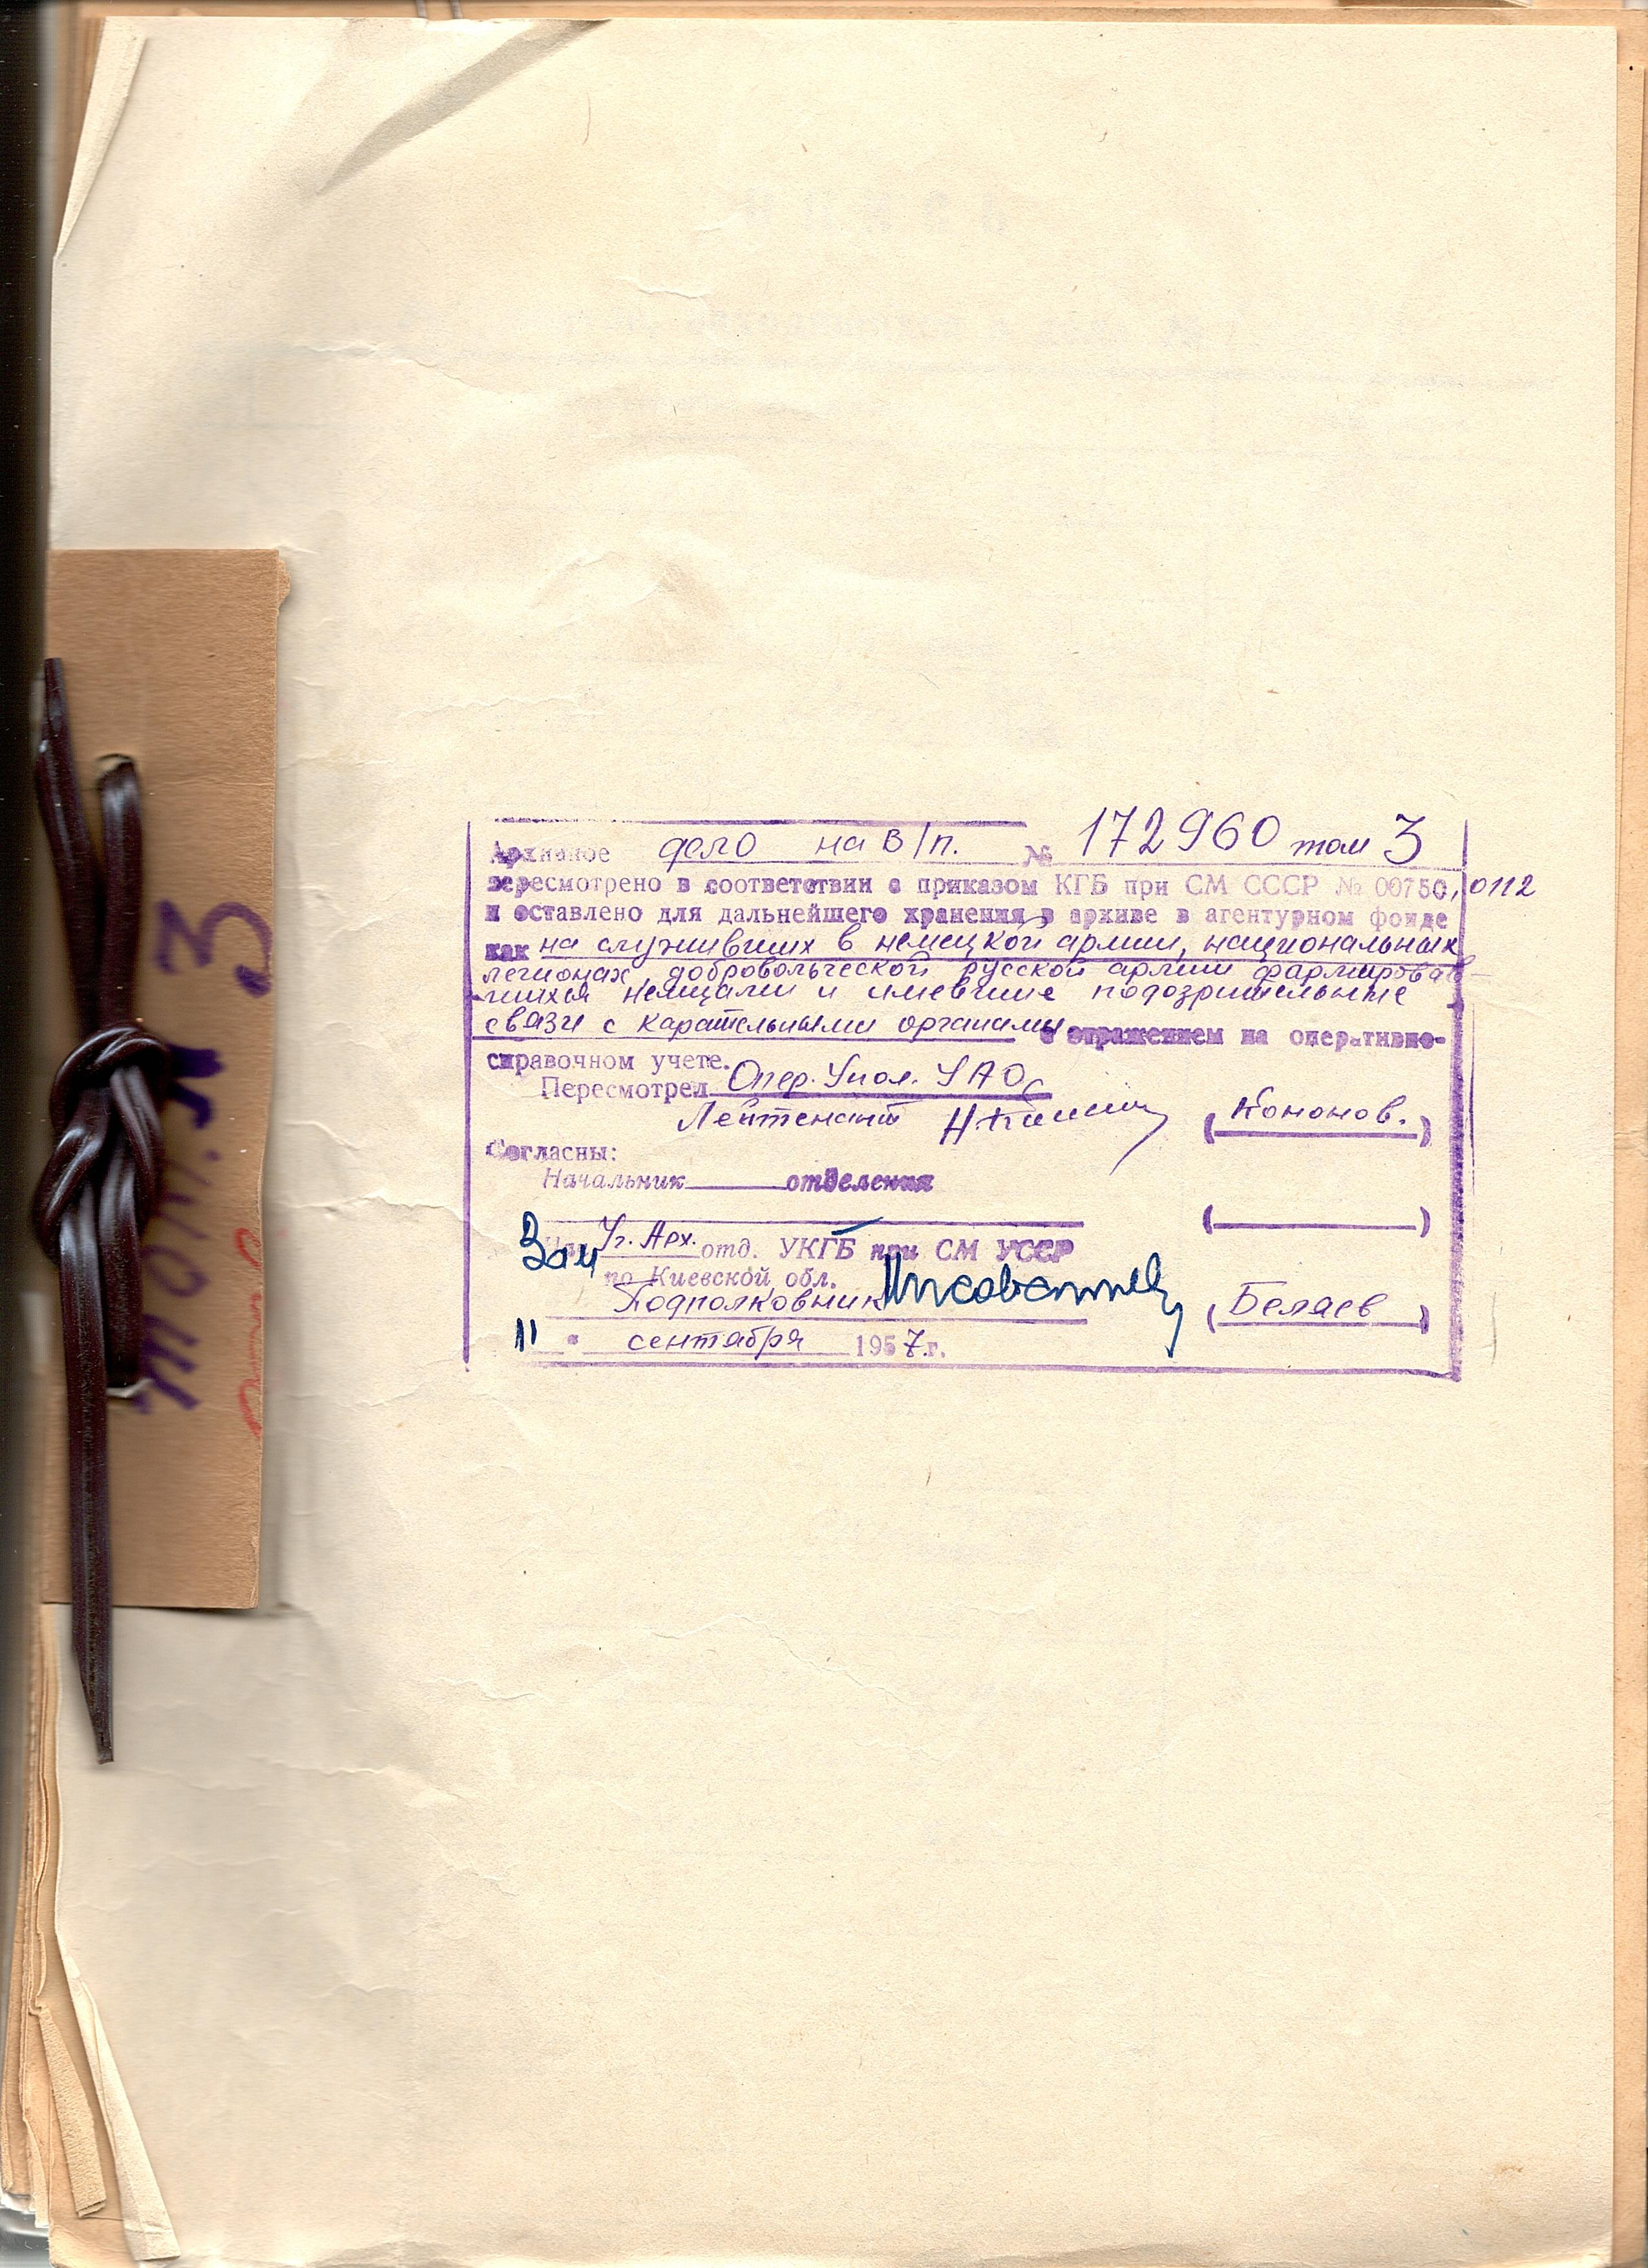 Архивное дело на в/п. № 172960 том 3
пересмотрено в соответствии с приказом КГБ при СМ СССР № 00750, 0112
и оставлено для дальнейшего хранения в архиве в агентурном фонде
как на служивших в немецкой армии, национальных
легионах, добровольческой русской армии формировав-
шихся немцами и имевшие подозрительные
связи с карательными органами с отражением на оперативно-
справочном учете.
Пересмотрел Опер. Упол. УАО
Лейтенант (Кононов.)
Согласны:
Начальник отделения
( )
Зам Уч. Арх. отд. УКГБ при СМ УССР
по Киевской обл.
Подполковник (Беляев)
11 " сентября 1957 г.
том. № 3